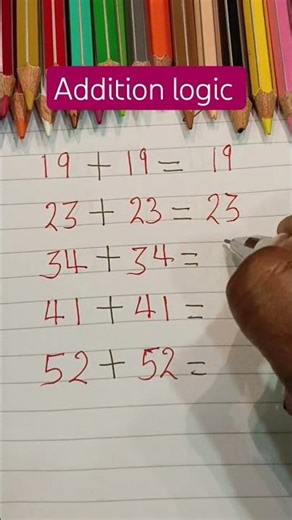 Addition logic
19 + 19 = 19
23 + 23 = 23
34 + 34 =
41 + 41 =
52 + 52 =